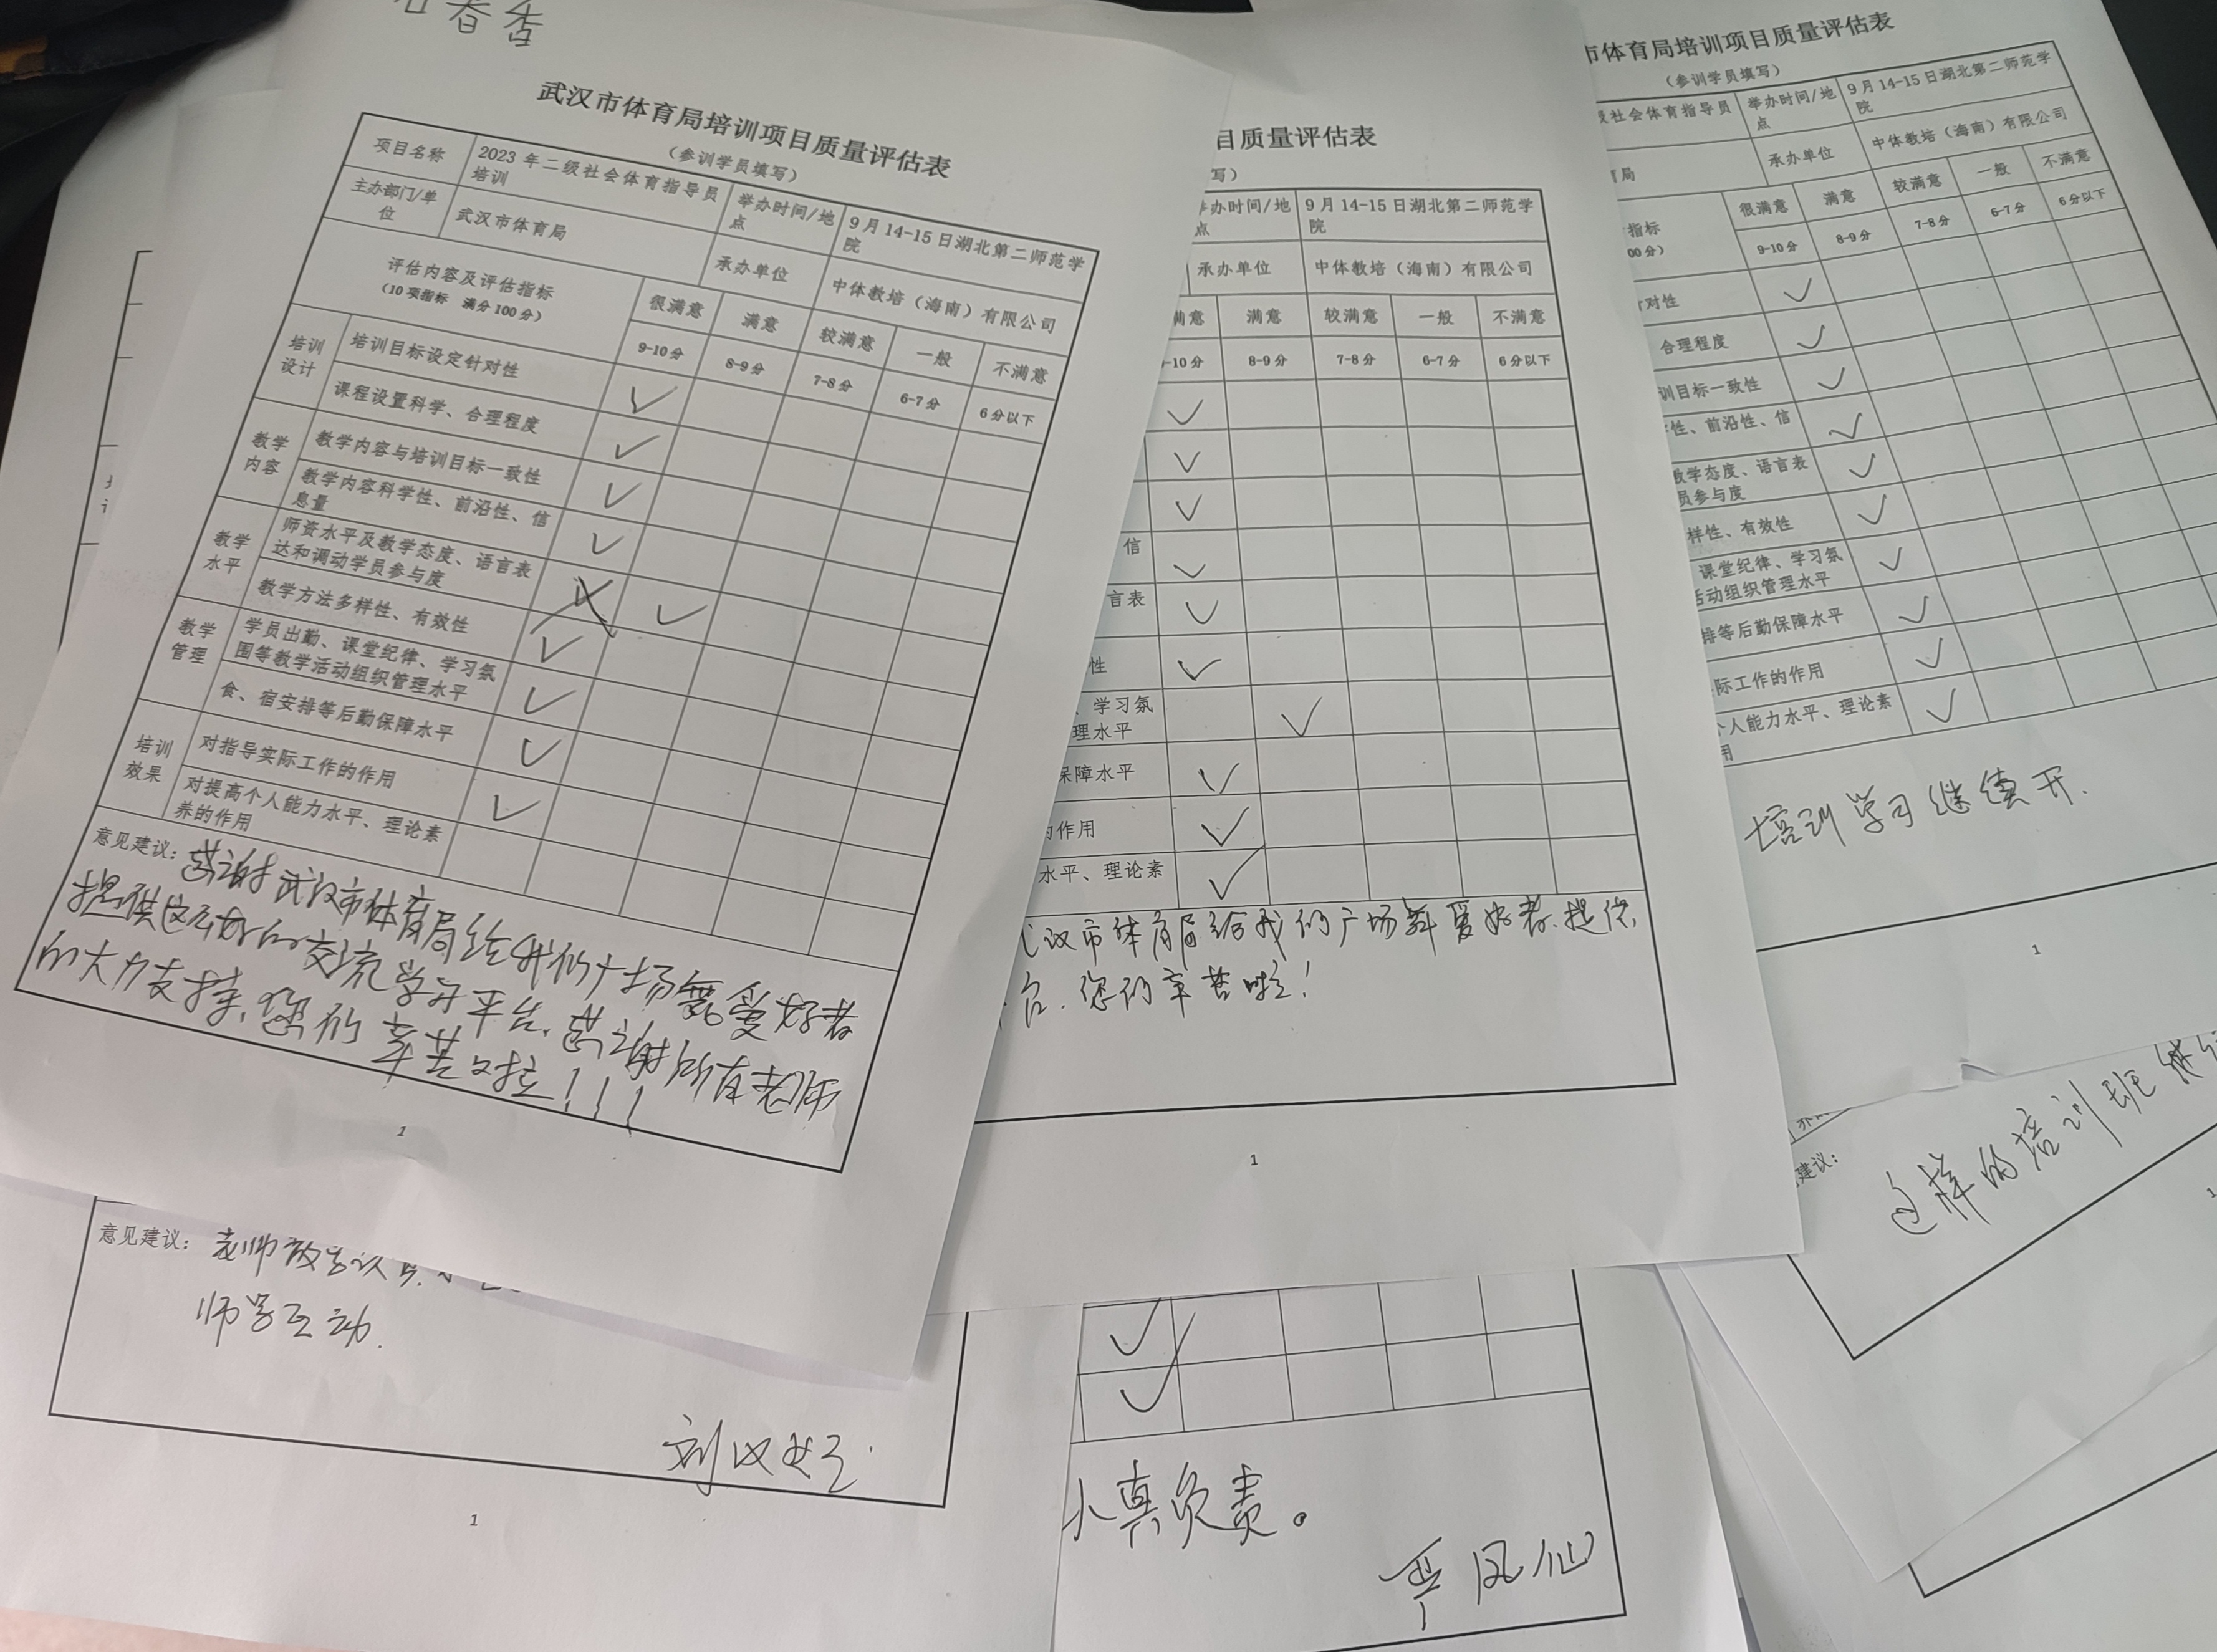 春香
武汉市体育局培训项目质量评估表
（参训学员填写）
项目名称
2023 年二级社会体育指导员
培训
举办时间/地
点
9 月 14-15 日湖北第二师范学
院
主办部门/单
位
武汉市体育局
承办单位
中体教培（海南）有限公司
评估内容及评估指标
（10 项指标 满分 100 分）
很满意
满意
较满意
一般
不满意
9-10 分
8-9 分
7-8 分
6-7 分
6 分以下
培训
设计
培训目标设定针对性
课程设置科学、合理程度
教学
内容
教学内容与培训目标一致性
教学内容科学性、前沿性、信
息量
教学
水平
师资水平及教学态度、语言表
达和调动学员参与度
教学方法多样性、有效性
教学
管理
学员出勤、课堂纪律、学习氛
围等教学活动组织管理水平
食、宿安排等后勤保障水平
培训
效果
对指导实际工作的作用
对提高个人能力水平、理论素
养的作用
意见建议：感谢武汉市体育局给我们广场舞爱好者
提供这么好的交流学习平台、感谢所有老师
的大力支持、您们辛苦了啦！！！
1
目质量评估表
写）
举办时间/地
点
9 月 14-15 日湖北第二师范学
院
承办单位
中体教培（海南）有限公司
满意
满意
较满意
一般
不满意
-10 分
8-9 分
7-8 分
6-7 分
6 分以下
信
言表
性
、学习氛
理水平
保障水平
的作用
水平、理论素
汉市体育局给我们广场舞爱好者、提供
台、您们辛苦啦！
1
市体育局培训项目质量评估表
（参训学员填写）
级社会体育指导员
举办时间/地
点
9 月 14-15 日湖北第二师范学
院
育局
承办单位
中体教培（海南）有限公司
指标
00 分）
很满意
满意
较满意
一般
不满意
9-10 分
8-9 分
7-8 分
6-7 分
6 分以下
针对性
合理程度
训目标一致性
学性、前沿性、信
教学态度、语言表
员参与度
样性、有效性
课堂纪律、学习氛
活动组织管理水平
排等后勤保障水平
际工作的作用
个人能力水平、理论素
用
培训学习继续开.
1
建议：
这样的培训班继续
1
意见建议：老师
师学互动.
刘汉
1
真负责。
严凤仙